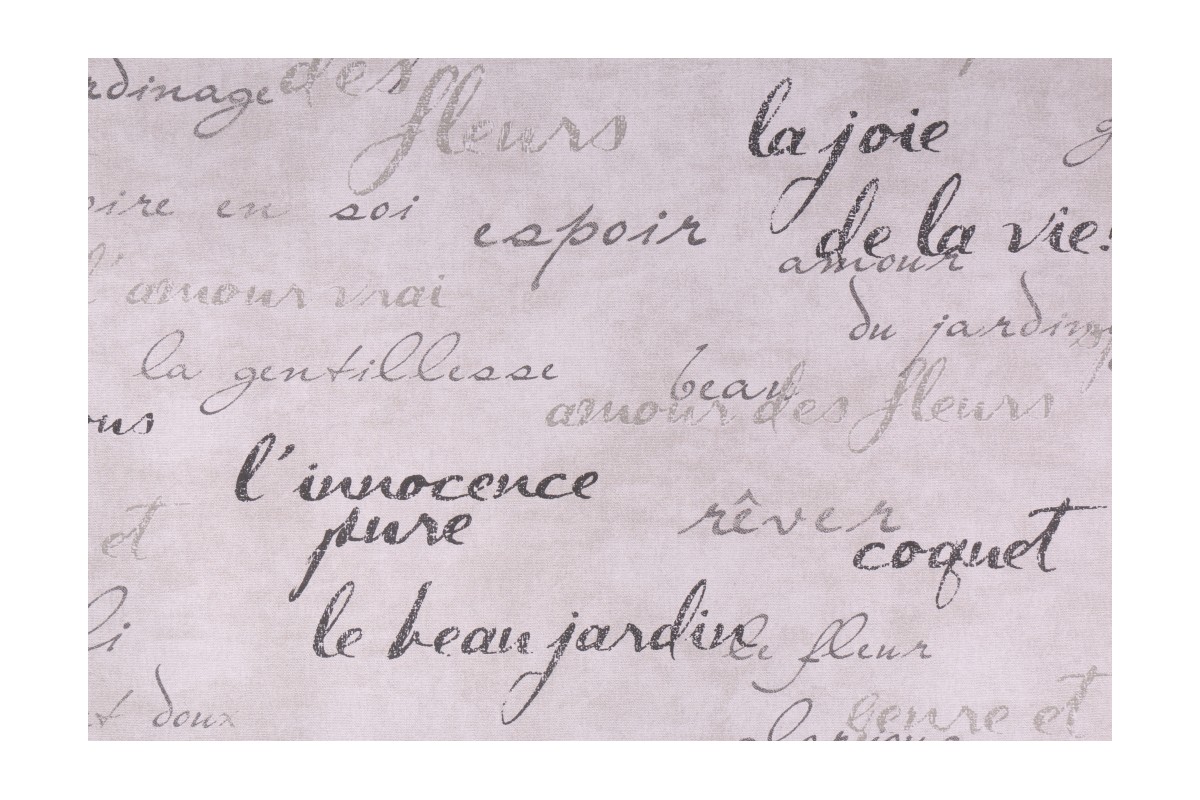 des
fleurs
la joie
en soi
espoir
de la vie
amour
l'amour vrai
du jardin
la gentillesse
beau
amour des fleurs
l'innocence
pure
rêver
coquet
et
le beau jardin
le fleur
doux
et